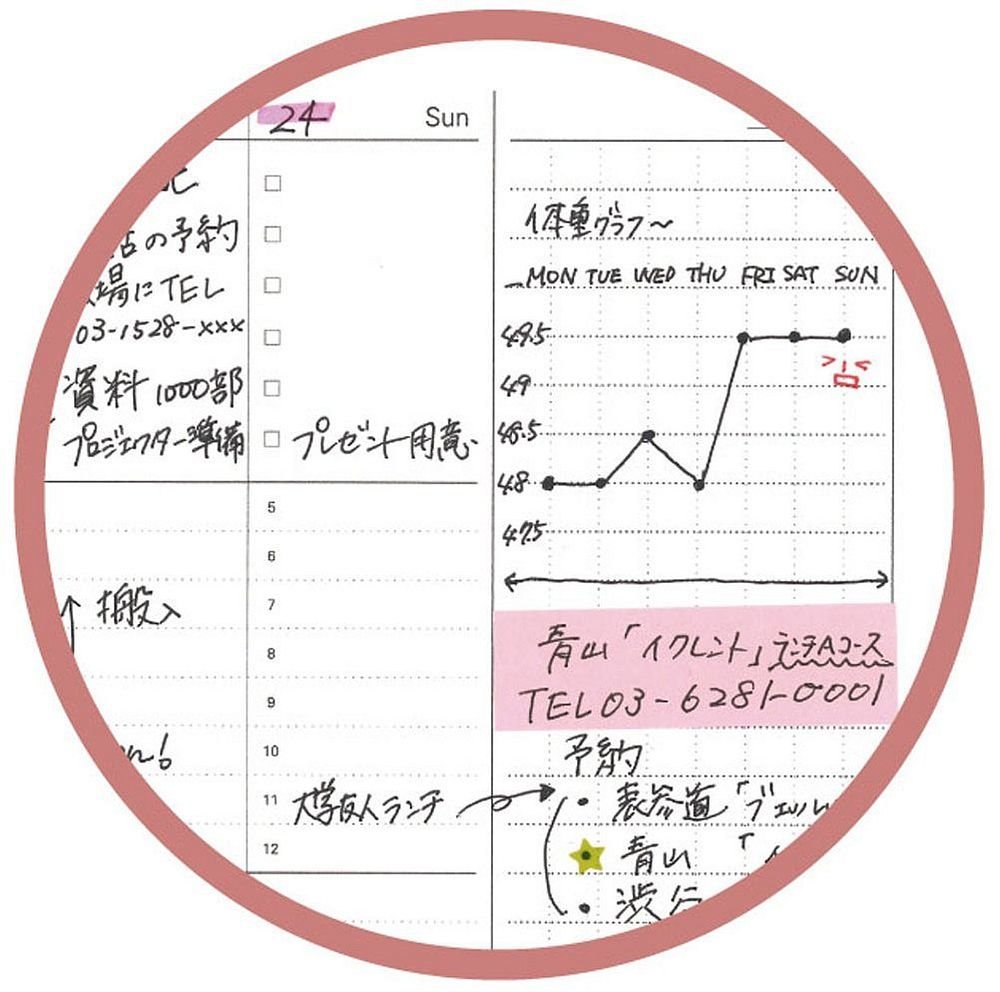 24 Sun
の予約
場にTEL
03-1528-xxx
資料 1000部
プロジェクター準備
プレゼント用意
5
6
7
搬入
8
9
10
11 大学友人ランチ
12
体重グラフ〜
MON TUE WED THU FRI SAT SUN
49.5
49
48.5
48
47.5
青山「イクレント」ランチAコース
TEL 03-6281-0001
予約
・表参道「ヴェルレ
青山 「イ
・渋谷